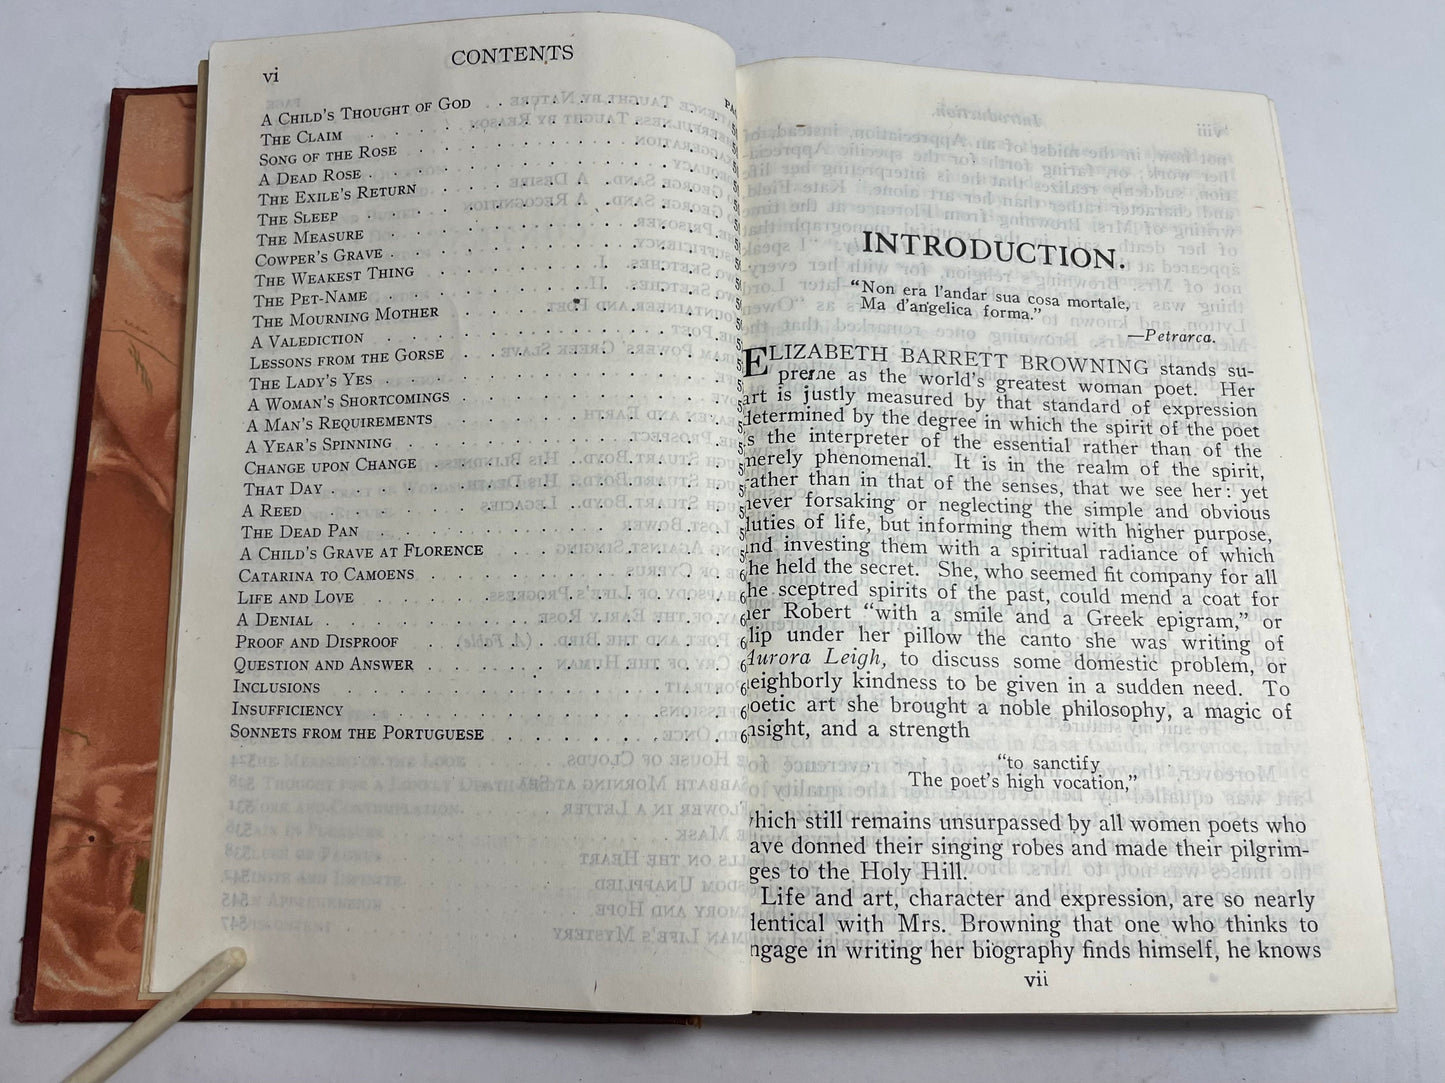 vi
CONTENTS
A Child's Thought of God
The Claim
Song of the Rose
A Dead Rose
The Exile's Return
The Sleep
The Measure
Cowper's Grave
The Weakest Thing
The Pet-Name
The Mourning Mother
A Valediction
Lessons from the Gorse
The Lady's Yes
A Woman's Shortcomings
A Man's Requirements
A Year's Spinning
Change upon Change
That Day
A Reed
The Dead Pan
A Child's Grave at Florence
Catarina to Camoens
Life and Love
A Denial
Proof and Disproof
Question and Answer
Inclusions
Insufficiency
Sonnets from the Portuguese
INTRODUCTION.
"Non era l'andar sua cosa mortale,
Ma d'angelica forma."
—Petrarca.
ELIZABETH BARRETT BROWNING stands su-
preme as the world's greatest woman poet. Her
art is justly measured by that standard of expression
determined by the degree in which the spirit of the poet
is the interpreter of the essential rather than of the
merely phenomenal. It is in the realm of the spirit,
rather than in that of the senses, that we see her: yet
never forsaking or neglecting the simple and obvious
duties of life, but informing them with higher purpose,
and investing them with a spiritual radiance of which
he held the secret. She, who seemed fit company for all
he sceptred spirits of the past, could mend a coat for
her Robert "with a smile and a Greek epigram," or
lip under her pillow the canto she was writing of
Aurora Leigh, to discuss some domestic problem, or
eighborly kindness to be given in a sudden need. To
oetic art she brought a noble philosophy, a magic of
nsight, and a strength
"to sanctify
The poet's high vocation,"
hich still remains unsurpassed by all women poets who
ave donned their singing robes and made their pilgrim-
ges to the Holy Hill.
Life and art, character and expression, are so nearly
lentical with Mrs. Browning that one who thinks to
ngage in writing her biography finds himself, he knows
vii